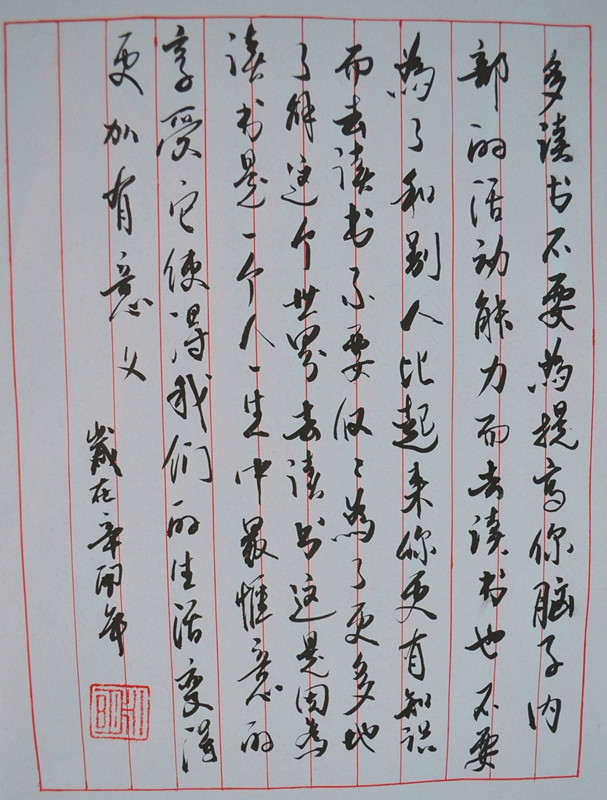 多读书不要为提高你脑子内
部的活动能力而去读书也不要
为了和别人比起来你更有知识
而去读书不要仅仅为了更多地
了解这个世界去读书这是因为
读书是一个人一生中最惬意的
享受它使得我们的生活变得
更加有意义
岁在辛丑年